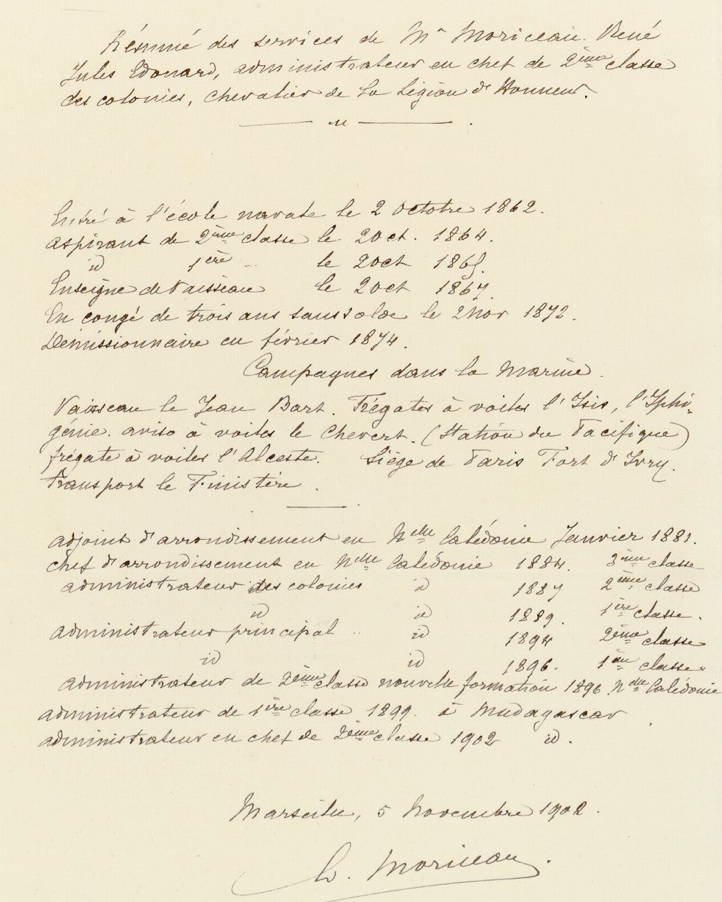 Résumé des services de Mr Moriceau. René
Jules Edouard, administrateur en chef de 2ème classe
des colonies, chevalier de la Légion d'Honneur.
Entré à l'école navale le 2 octobre 1862.
aspirant de 2ème classe le 2 Oct. 1864.
id 1ère " le 2 Oct 1865.
Enseigne de Vaisseau le 2 Oct 1867.
En congé de trois ans sans solde le 2 Nov 1872.
Démissionnaire en février 1874.
Campagnes dans la Marine.
Vaisseau le Jean Bart. Frégates à voiles l'Isis, l'Iphi-
génie. aviso à voiles le Chevert. (Station du Pacifique)
frégate à voiles l'Alceste. Siège de Paris Fort d'Ivry.
Transport le Finistère.
adjoint d'arrondissement en Nelle Calédonie Janvier 1881.
chef d'arrondissement en Nelle Calédonie 1884. 3ème classe
administrateur des colonies id 1887 2ème classe
id id 1889. 1ère classe.
administrateur principal id 1894 2ème classe
id id 1896. 1ère classe
administrateur de 2ème classe nouvelle formation 1896 Nelle Calédonie
administrateur de 1ère classe 1899. à Madagascar
administrateur en chef de 2ème classe 1902 id.
Marseille, 5 Novembre 1902.
Moriceau.